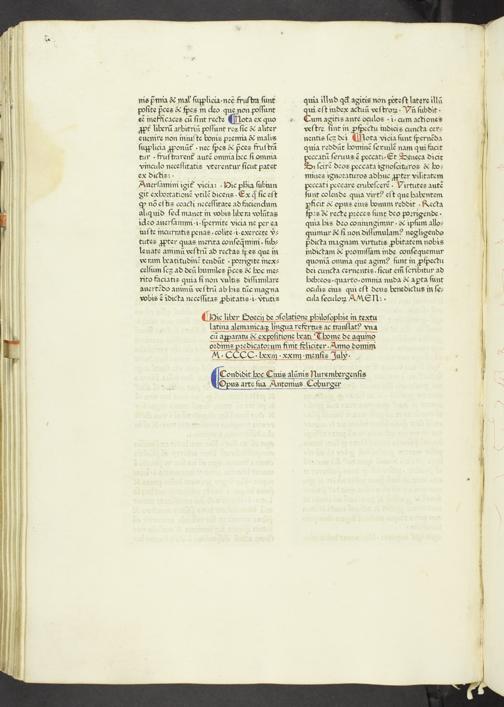 nis p̄mia & mal' supplicia. nec frustra sunt
posite p̄ces & spes in deo. que non possunt
eē inefficaces cū sint recte Nota ex quo
ppt' liberū arbitriū possunt res sic & aliter
euenire non iniuste bonis premia & malis
supplicia pponūt'. nec spes & p̄ces frustrā
tur. frustrarent' autē omnia hec si omnia
vinculo necessitatis verterentur sicut patet
ex dictis:.
Auersamini igit' vicia: Hic phia subiun
git exhortationē vtilē dicens. Ex q̄ sic est
q̄ nō estis coacti necessitate ad faciendum
aliquid sed manet in vobis libera volūtas
ideo auersamini .i. spernite vicia ne per ea
iuste incurratis penas. colite .i. exercete v̄
tutes ppter quas merita consequimini. sub
leuate animū vestrū ad rectas spes que in
veram beatitudinē tendūt. porrigite in ex
celsum scz ad deū humiles p̄ces & hoc me
rito faciatis quia si non vultis dissimilare
auertēdo animū vestrū ab his tūc magna
vobis ē indicta necessitas pbitatis .i. v̄tutis
quia illud qd agitis non potest latere illū
qui est iudex actuū vestrorū. Vn̄ subdit.
Cum agitis ante oculos .i. cum actiones
vestre sint in p̄spectu iudicis cuncta cer
nentis scz dei Nota vicia sunt spernenda
quia reddūt hominē seruilē nam qui facit
peccatū seruus ē peccati. Et Seneca dicit
Si scirē deos peccata ignoscituros & ho
mines ignoraturos adhuc ppter vilitatem
peccati peccare erubescerē. Virtutes autē
sunt colende quia virt' est que habentem
pficit & opus eius bonum reddit. Recte
spes & recte preces sunt deo porrigende.
quia his deo coniungimur. & ipsum allo
quimur & si non dissimulam' negligendo
p̄dicta magnam virtutis pbitatem nobis
indictam & promissam inde consequemur
quoniā omnia que agim' sunt in p̄spectu
dei cuncta cernentis. sicut em̄ scribitur ad
hebreos. quarto. omnia nuda & apta sunt
oculis eius qui est deus benedictus in se
cula seculorum AMEN:.
Hic liber Boecij de ɔsolatione philosophie in textu
latina alemanicaq̄ lingua refertus ac translat' vna
cū apparatu & expositione beati Thome de aquino
ordinis predicatorum finit feliciter. Anno domini
M.CCCC.lxxiij.xxiiij mensis July.
Condidit hoc Ciuis alūnis Nurembergensis
Opus arte sua Antonius Coburger